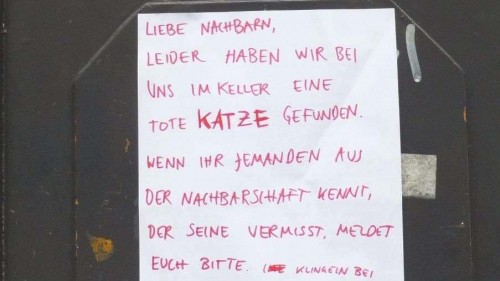 LIEBE NACHBARN,
LEIDER HABEN WIR BEI
UNS IM KELLER EINE
TOTE KATZE GEFUNDEN.
WENN IHR JEMANDEN AUS
DER NACHBARSCHAFT KENNT,
DER SEINE VERMISST, MELDET
EUCH BITTE. KLINGELN BEI